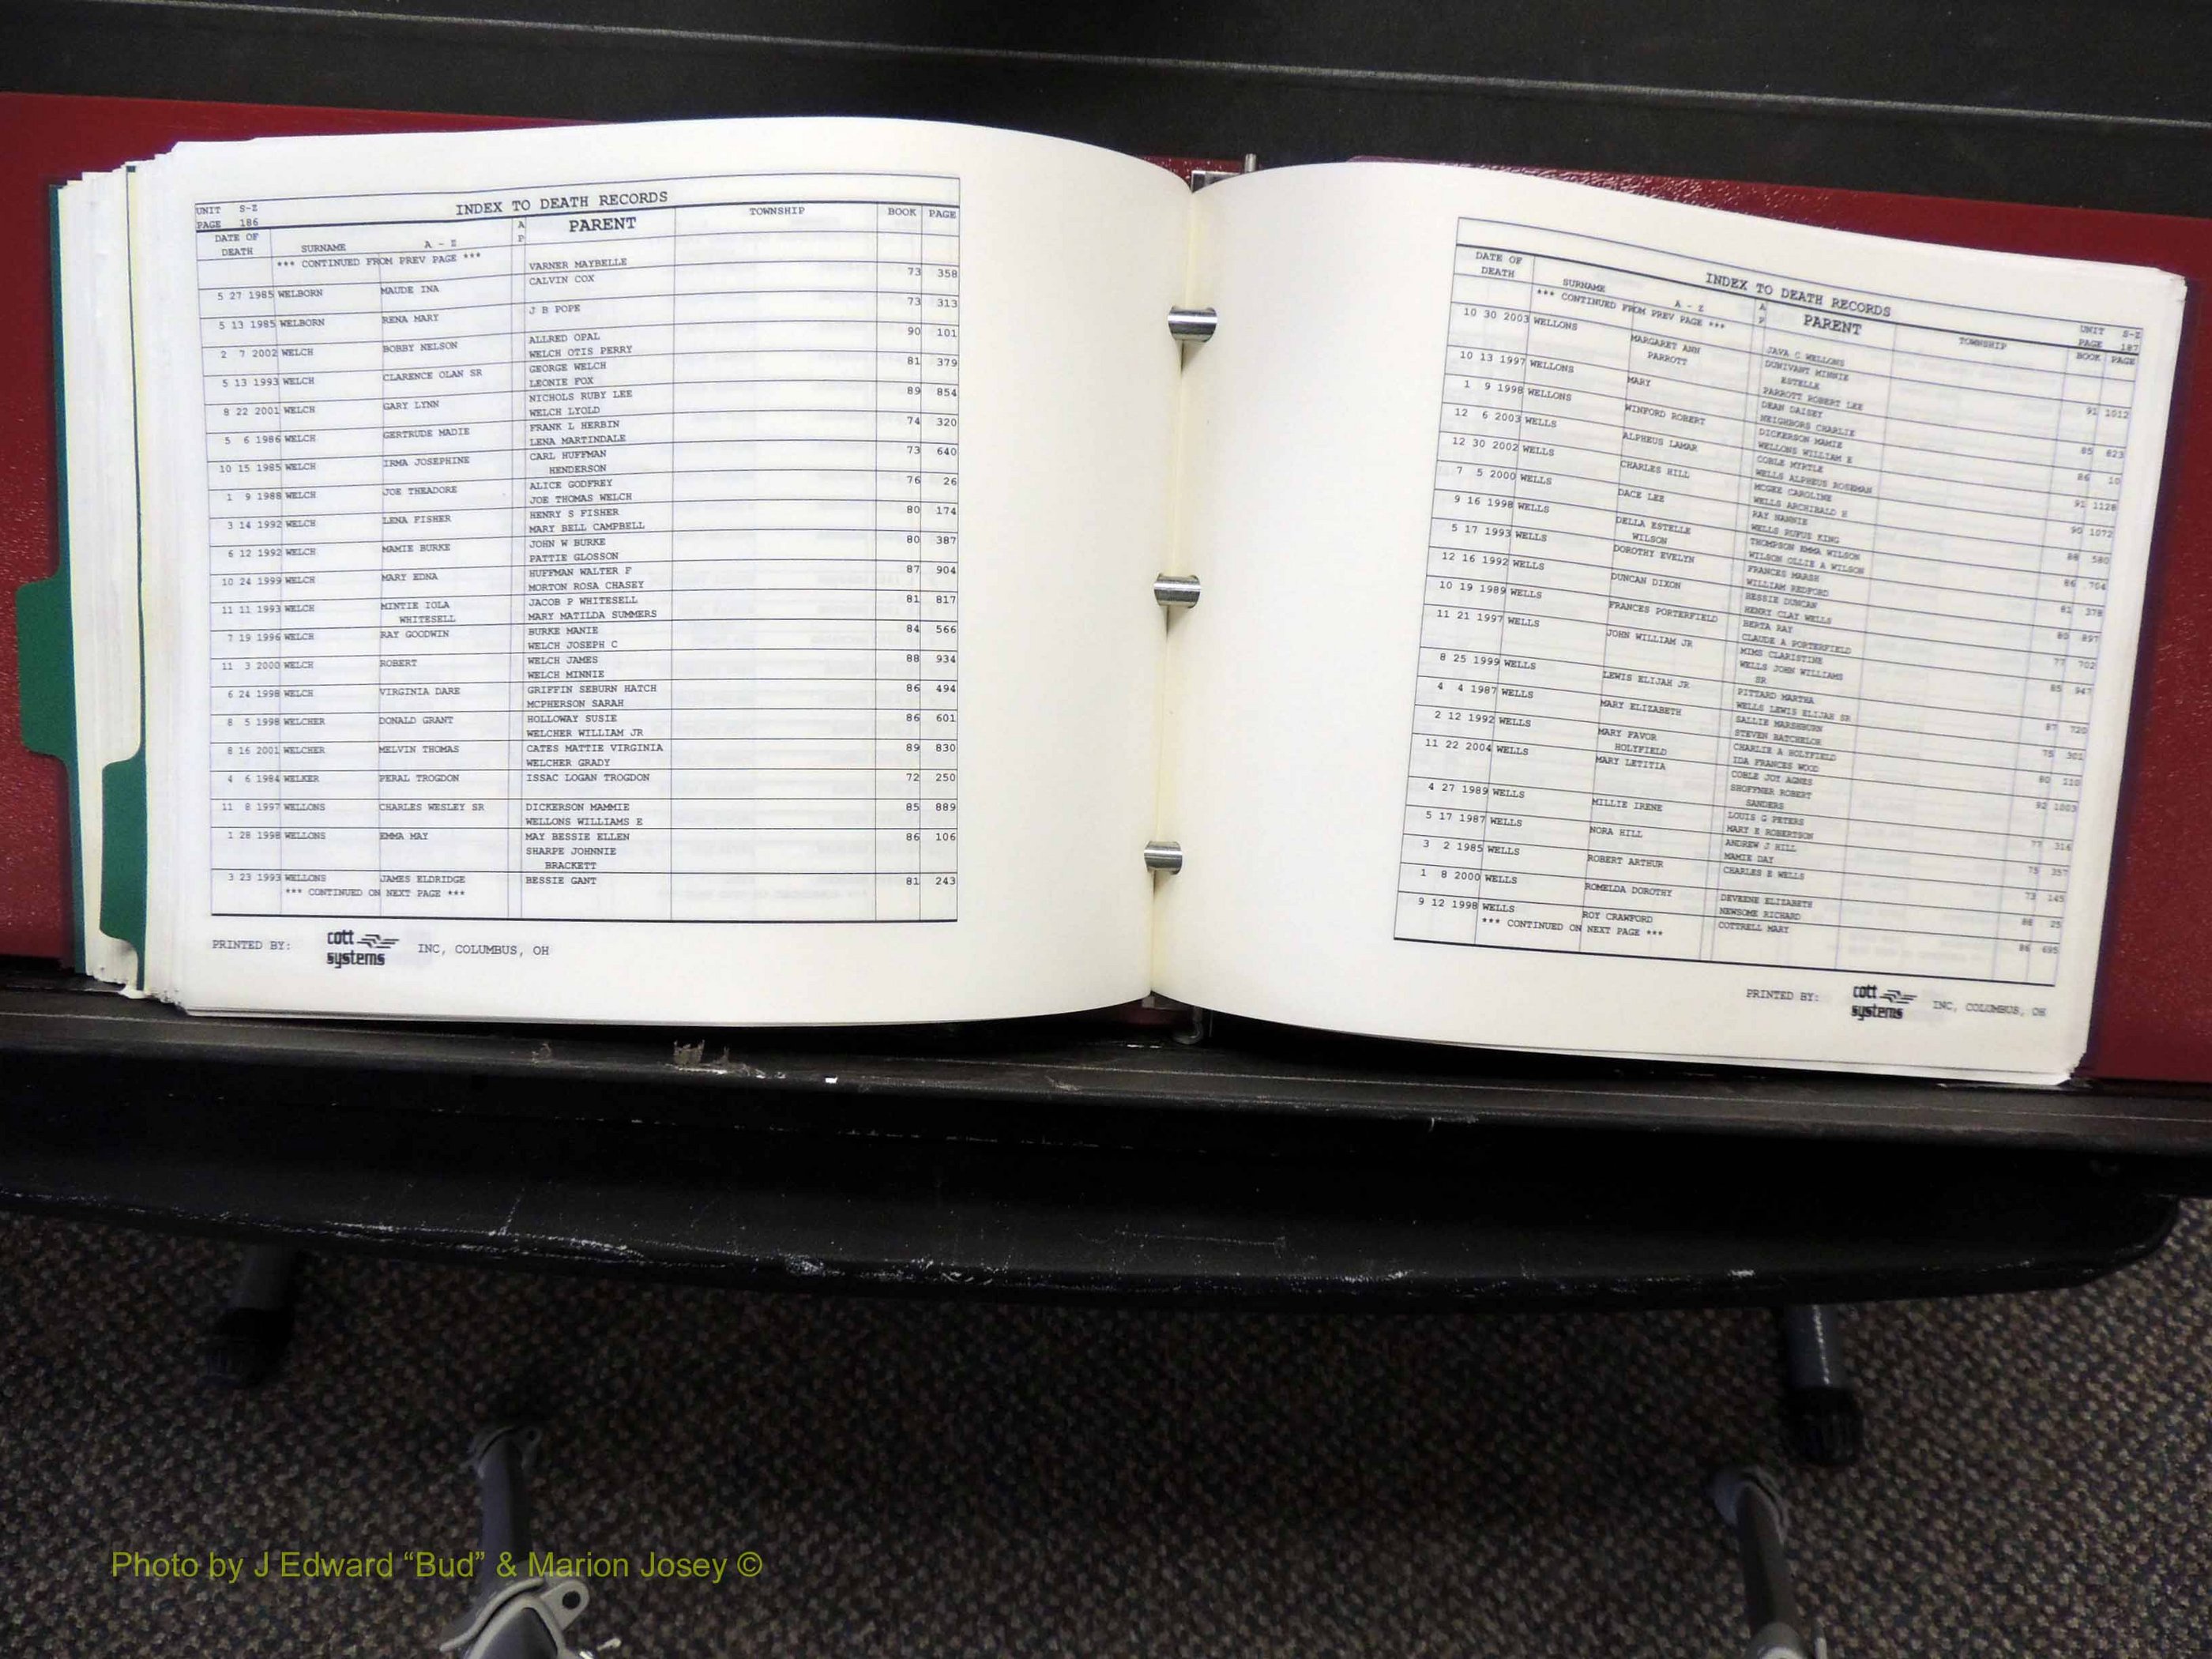 UNIT S-Z INDEX TO DEATH RECORDS
PAGE 186
DATE OF DEATH SURNAME A - Z A P PARENT TOWNSHIP BOOK PAGE
*** CONTINUED FROM PREV PAGE *** VARNER MAYBELLE
CALVIN COX 73 358
5 27 1985 WELBORN MAUDE INA
J B POPE 73 313
5 13 1985 WELBORN RENA MARY
ALLRED OPAL 90 101
2 7 2002 WELCH BOBBY NELSON WELCH OTIS PERRY
GEORGE WELCH 81 379
5 13 1993 WELCH CLARENCE OLAN SR LEONIE FOX
NICHOLS RUBY LEE 89 854
8 22 2001 WELCH GARY LYNN WELCH LYOLD
FRANK L HERBIN 74 320
5 6 1986 WELCH GERTRUDE MADIE LENA MARTINDALE
CARL HUFFMAN 73 640
10 15 1985 WELCH IRMA JOSEPHINE HENDERSON
ALICE GODFREY 76 26
1 9 1988 WELCH JOE THEADORE JOE THOMAS WELCH
HENRY S FISHER 80 174
3 14 1992 WELCH LENA FISHER MARY BELL CAMPBELL
JOHN W BURKE 80 387
6 12 1992 WELCH MAMIE BURKE PATTIE GLOSSON
HUFFMAN WALTER F 87 904
10 24 1999 WELCH MARY EDNA MORTON ROSA CHASEY
JACOB P WHITESELL 81 817
11 11 1993 WELCH MINTIE IOLA MARY MATILDA SUMMERS
WHITESELL
7 19 1996 WELCH RAY GOODWIN BURKE MANIE 84 566
WELCH JOSEPH C
11 3 2000 WELCH ROBERT WELCH JAMES 88 934
WELCH MINNIE
6 24 1998 WELCH VIRGINIA DARE GRIFFIN SEBURN HATCH 86 494
MCPHERSON SARAH
8 5 1998 WELCHER DONALD GRANT HOLLOWAY SUSIE 86 601
WELCHER WILLIAM JR
8 16 2001 WELCHER MELVIN THOMAS CATES MATTIE VIRGINIA 89 830
WELCHER GRADY
4 6 1984 WELKER PERAL TROGDON ISSAC LOGAN TROGDON 72 250
11 8 1997 WELLONS CHARLES WESLEY SR DICKERSON MAMMIE 85 889
WELLONS WILLIAMS E
1 28 1998 WELLONS EMMA MAY MAY BESSIE ELLEN 86 106
SHARPE JOHNNIE
BRACKETT
3 23 1993 WELLONS JAMES ELDRIDGE BESSIE GANT 81 243
*** CONTINUED ON NEXT PAGE ***
PRINTED BY: cott systems INC, COLUMBUS, OH
INDEX TO DEATH RECORDS UNIT S-Z
PAGE 187
DATE OF DEATH SURNAME A - Z A P PARENT TOWNSHIP BOOK PAGE
*** CONTINUED FROM PREV PAGE *** JAVA C WELLONS
10 30 2003 WELLONS MARGARET ANN DUNIVANT MINNIE 91 1012
PARROTT ESTELLE
PARROTT ROBERT LEE
10 13 1997 WELLONS MARY DEAN DAISEY 85 823
NEIGHBORS CHARLIE
1 9 1998 WELLONS WINFORD ROBERT DICKERSON MAMIE 86 10
WELLONS WILLIAM E
12 6 2003 WELLS ALPHEUS LAMAR COBLE MYRTLE 91 1128
WELLS ALPHEUS ROSEMAN
12 30 2002 WELLS CHARLES HILL MCGEE CAROLINE 90 1072
WELLS ARCHIBALD H
7 5 2000 WELLS DACE LEE RAY NANNIE 88 580
WELLS RUFUS KING
9 16 1998 WELLS DELLA ESTELLE THOMPSON EMMA WILSON 86 704
WILSON WILSON OLLIE A WILSON
5 17 1993 WELLS DOROTHY EVELYN FRANCES MARSH 81 378
WILLIAM REDFORD
12 16 1992 WELLS DUNCAN DIXON BESSIE DUNCAN 80 897
HENRY CLAY WELLS
10 19 1989 WELLS FRANCES PORTERFIELD BERTA RAY 77 702
CLAUDE A PORTERFIELD
11 21 1997 WELLS JOHN WILLIAM JR MIMS CLARISTINE 85 947
WELLS JOHN WILLIAMS
SR
8 25 1999 WELLS LEWIS ELIJAH JR PITTARD MARTHA 87 720
WELLS LEWIS ELIJAH SR
4 4 1987 WELLS MARY ELIZABETH SALLIE MARSHBURN 75 301
STEVEN BATCHELOR
2 12 1992 WELLS MARY FAVOR CHARLIE A HOLYFIELD 80 110
HOLYFIELD IDA FRANCES WOOD
11 22 2004 WELLS MARY LETITIA COBLE JOY AGNES 92 1003
SHOFFNER ROBERT
SANDERS
4 27 1989 WELLS MILLIE IRENE LOUIS G PETERS 77 316
MARY E ROBERTSON
5 17 1987 WELLS NORA HILL ANDREW J HILL 75 357
MAMIE DAY
3 2 1985 WELLS ROBERT ARTHUR CHARLES E WELLS 73 145
1 8 2000 WELLS ROMELDA DOROTHY DEVEENE ELIZABETH 88 25
NEWSOME RICHARD
9 12 1998 WELLS ROY CRAWFORD COTTRELL MARY 86 695
*** CONTINUED ON NEXT PAGE ***
PRINTED BY: cott systems INC, COLUMBUS, OH
Photo by J Edward “Bud” & Marion Josey ©